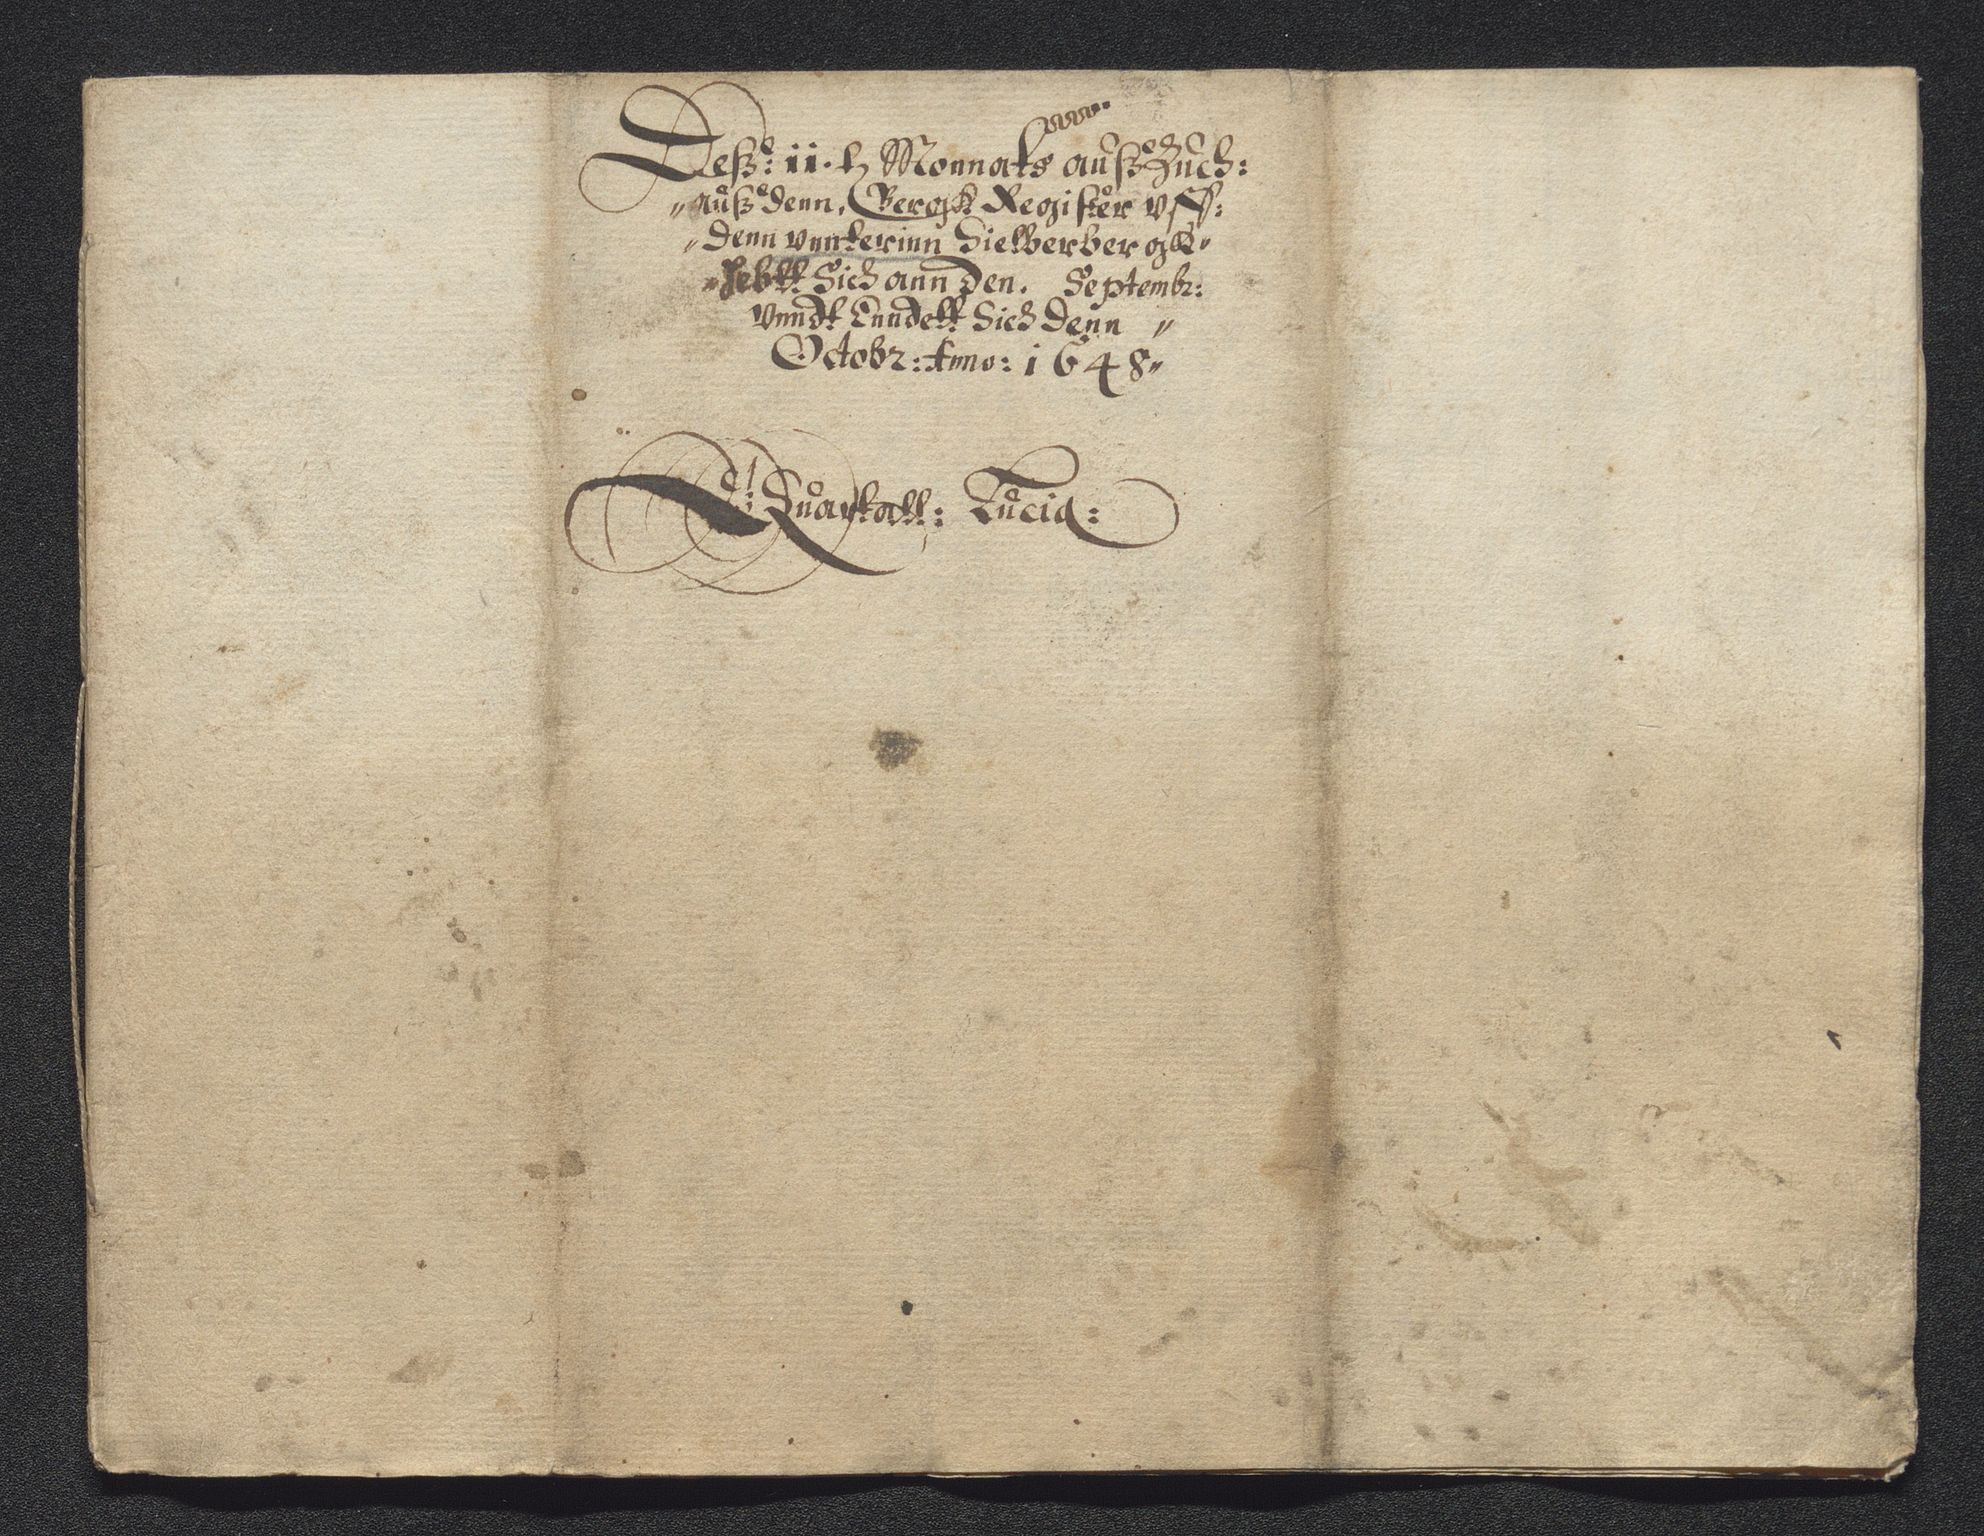 Deß: 11. Monnats außZuch:
"auß denn, Bergk Register vff:
"denn vnnterinn Sielberbergk"
"hebtt Sich ann den. Septembr:
Vnndt Enndett Sich denn "
Octobr: Anno: 1648"
Quartall: Lucia: